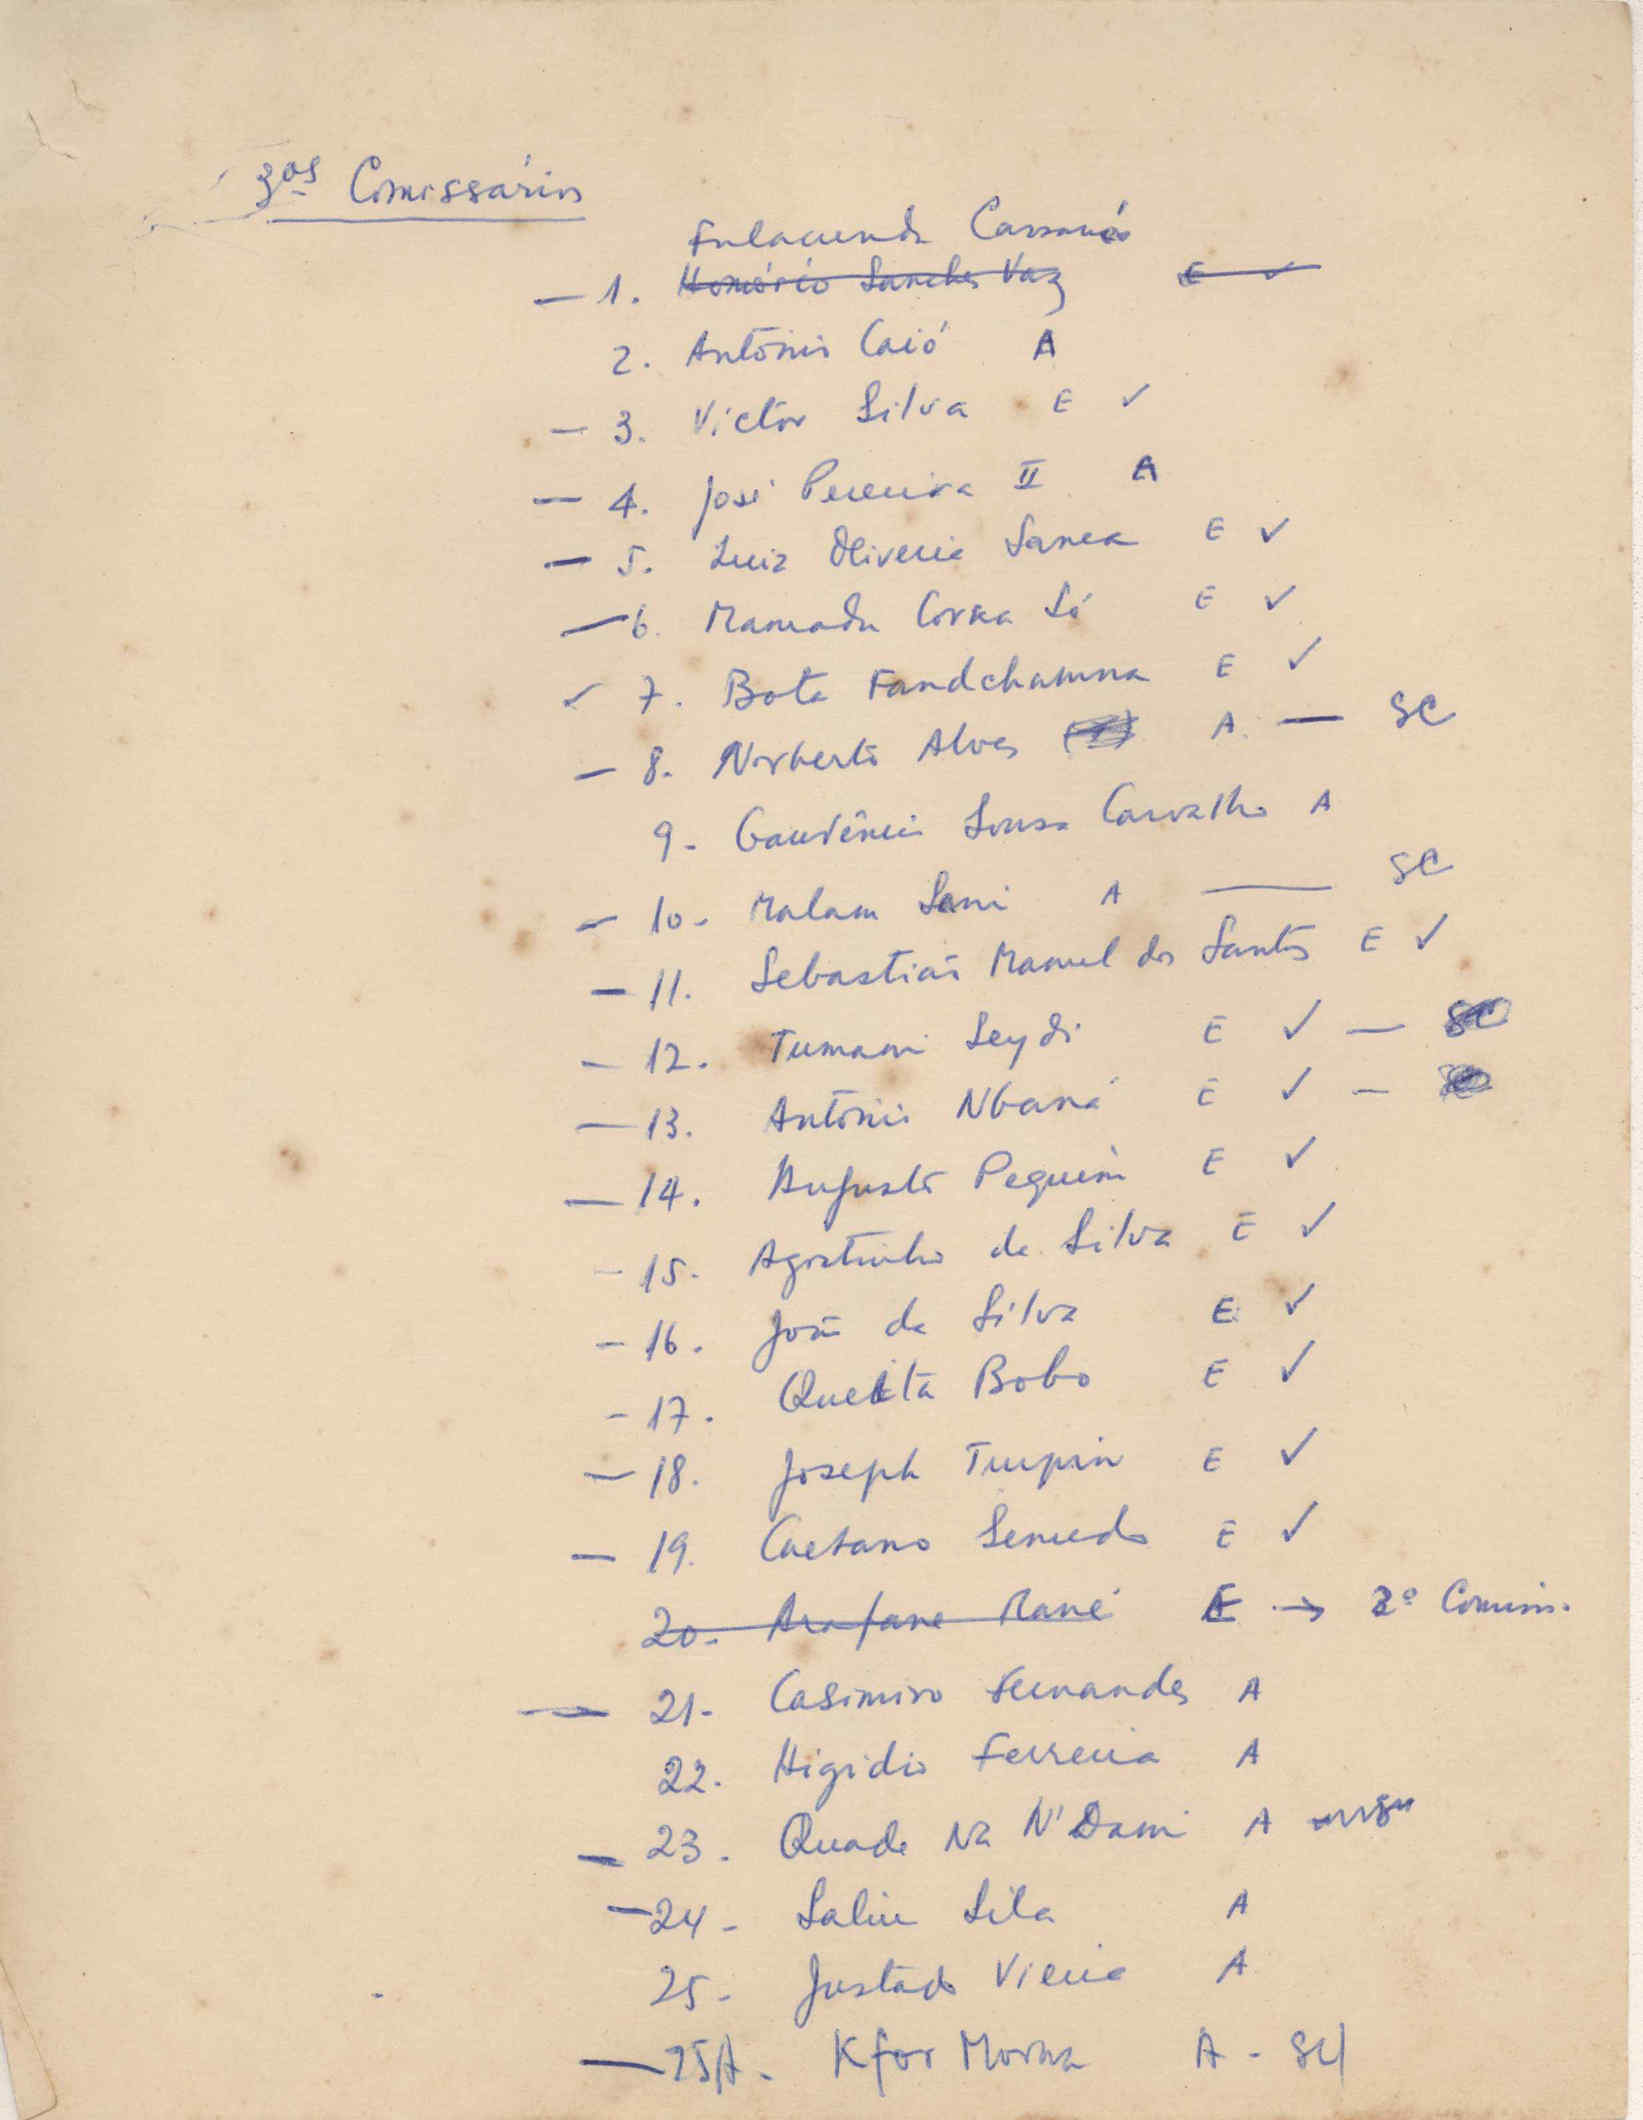 3os Comissários
Fulacunda Cassamá
— 1. Honório Sanches Vaz E ✓
2. António Caió A
— 3. Victor Silva E ✓
— 4. José Pereira II A
— 5. Luiz Oliveira Sanca E ✓
— 6. Mamadu Corka Só E ✓
✓ 7. Bota Fandchamna E ✓
— 8. Norberto Alves A. — SC
9- Gaudêncio Sousa Carvalho A
— 10- Malam Sani A — SC
— 11. Sebastião Manuel dos Santos E ✓
— 12. Tumani Seydi E ✓ — SC
— 13. António Nbaná E ✓ —
— 14. Augusto Pequim E ✓
— 15- Agostinho da Silva E ✓
— 16. João da Silva E ✓
— 17. Queita Bobo E ✓
— 18. Joseph Turpin E ✓
— 19. Caetano Semedo E ✓
20. Arafane Mané E → 2º Comiss.
— 21- Casimiro Fernandes A
22. Higidio Ferreira A
— 23. Quade Na N'Dami A
— 24- Saliu Sila A
25- Justado Vieira A
— 25A. Kfor Morna A -